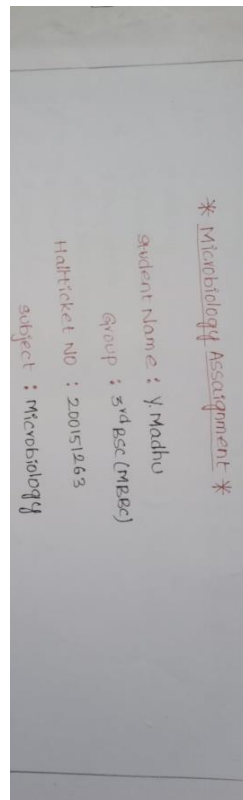 * Microbiology Assaignment *
student Name : Y. Madhu
Group : 3rd BSC (MBBC)
Hallticket NO : 200151263
subject : Microbiology